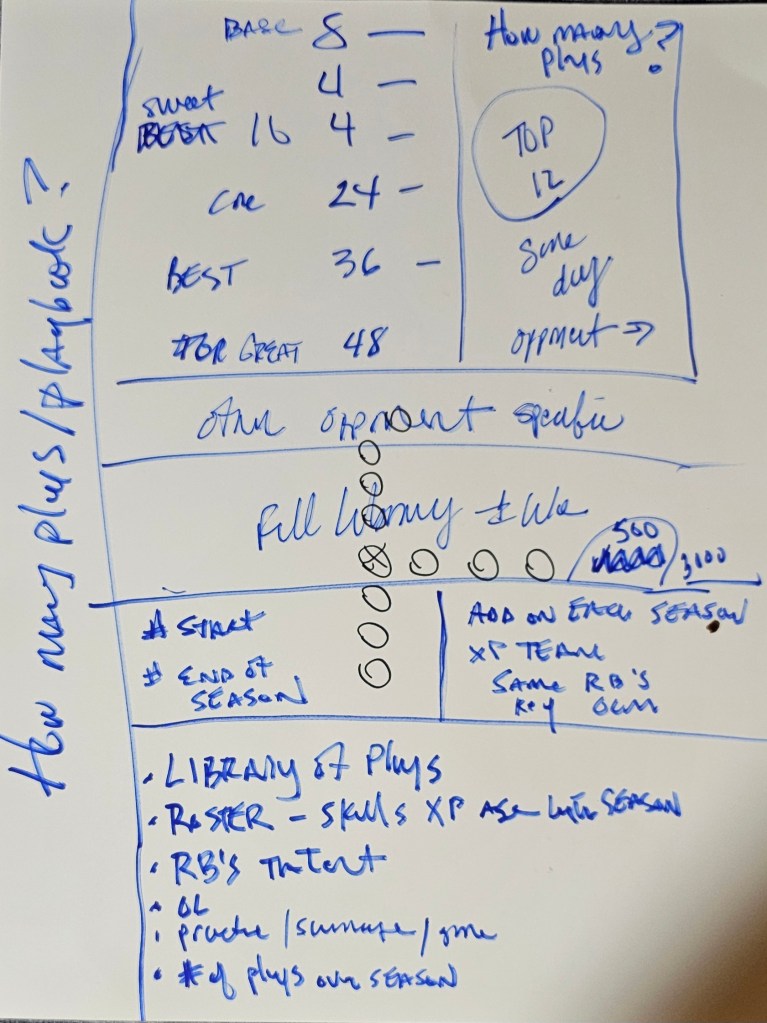 How many plays/playbook?
BASE 8 —
4 —
sweet
16 4 —
Core 24 —
BEST 36 —
GREAT 48
How many plays?
TOP
12
Same
day
opponent →
other opponent specific
Full library
500
3,100
# START
# END OF
SEASON
ADD ON EACH SEASON
XP TEAM
SAME RB'S
KEY
• LIBRARY of Plays
• ROSTER - Skills XP Age SEASON
• RB's Talent
• OL
• practice/scrimmage/game
• # of plays over SEASON